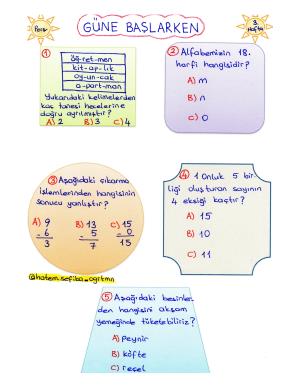 Pers
GÜNE BAŞLARKEN
3.
Hafta
1
öğ-ret-men
kit-ap-lık
oy-un-cak
a-part-man
Yukarıdaki kelimelerden
kaç tanesi hecelerine
doğru ayrılmıştır?
A) 2 B) 3 C) 4
2 Alfabemizin 18.
harfi hangisidir?
A) m
B) n
C) o
3 Aşağıdaki çıkarma
işlemlerinden hangisinin
sonucu yanlıştır?
A) 9 B) 13 C) 15
- 6 5 0
3 7 15
4 1 Onluk 5 bir-
liği oluşturan sayının
4 eksiği kaçtır?
A) 15
B) 10
C) 11
@hatem_sefiba_ogitmn
5 Aşağıdaki besinler-
den hangisini akşam
yemeğinde tüketebiliriz?
A) Peynir
B) köfte
C) reçel